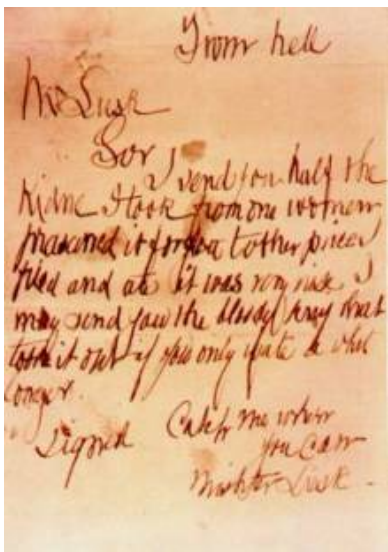 From hell
Mr Lusk
Sor
I send you half the
Kidne I took from one women
prasarved it for you tother piece I
fried and ate it was very nise I
may send you the bloody knif that
took it out if you only wate a whil
longer.
signed Catch me when
you can
Mishter Lusk.